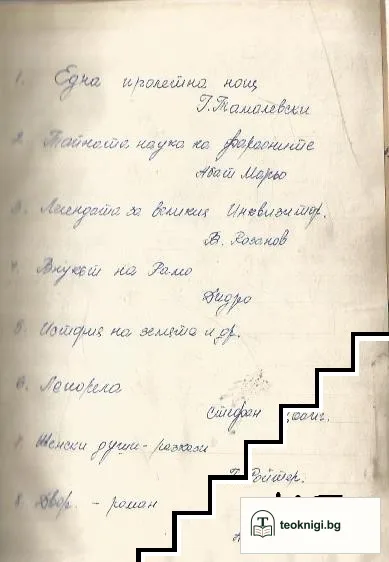 1. Една пролетна нощ
Г. Томалевски
2. Тайната наука на фараоните
Абат Морьо
3. Легендата за великия Инквизитор.
В. Розанов
4. Внукът на Рамо
Дидро
5. История на земята и др.
6. Лепорела
Стефан Цвайг.
7. Женски души - разкази
8. Двор. - роман
teoknigi.bg